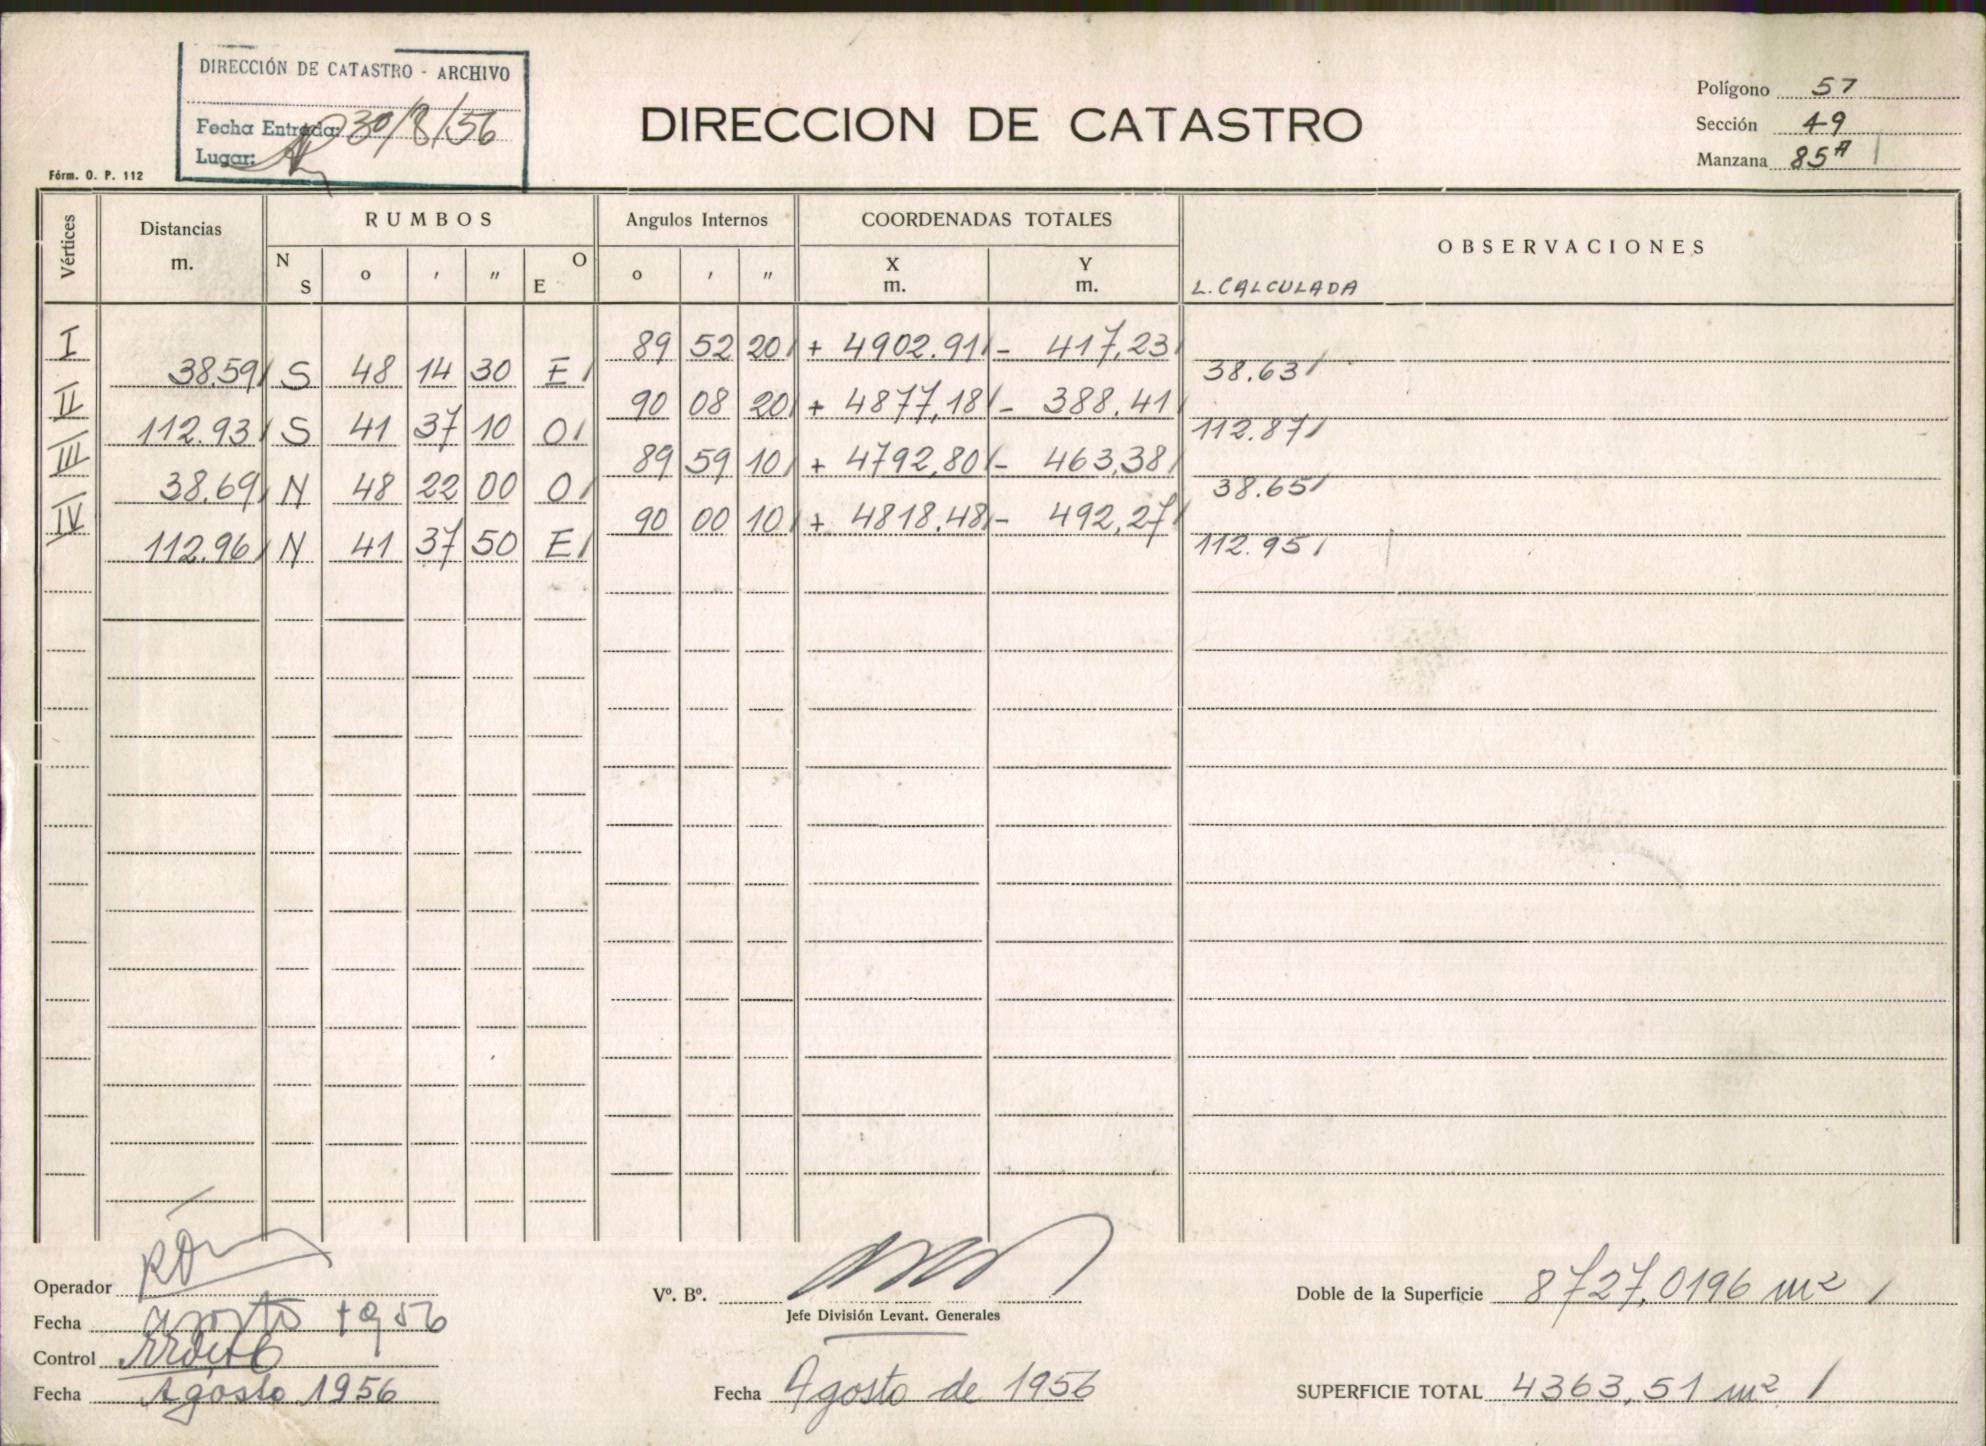 DIRECCIÓN DE CATASTRO - ARCHIVO
Fecha Entrada: 30/8/56
Lugar:
Fórm. O. P. 112
DIRECCION DE CATASTRO
Polígono 57
Sección 49
Manzana 85A
Vértices Distancias m. RUMBOS Angulos Internos COORDENADAS TOTALES OBSERVACIONES
N S o ' " O E o ' " X m. Y m. L. CALCULADA
I 89 52 20 + 4902.91 - 417,23
38.59 S 48 14 30 E 38.63
II 90 08 20 + 4877,18 - 388.41
112.93 S 41 37 10 O 112.87
III 89 59 10 + 4792,80 - 463,38
38.69 N 48 22 00 O 38.65
IV 90 00 10 + 4818.48 - 492,27
112.96 N 41 37 50 E 112.95
Operador
Fecha agosto 1956
Control
Fecha Agosto 1956
Vº. Bº.
Jefe División Levant. Generales
Fecha Agosto de 1956
Doble de la Superficie 8727,0196 m2
SUPERFICIE TOTAL 4363,51 m2